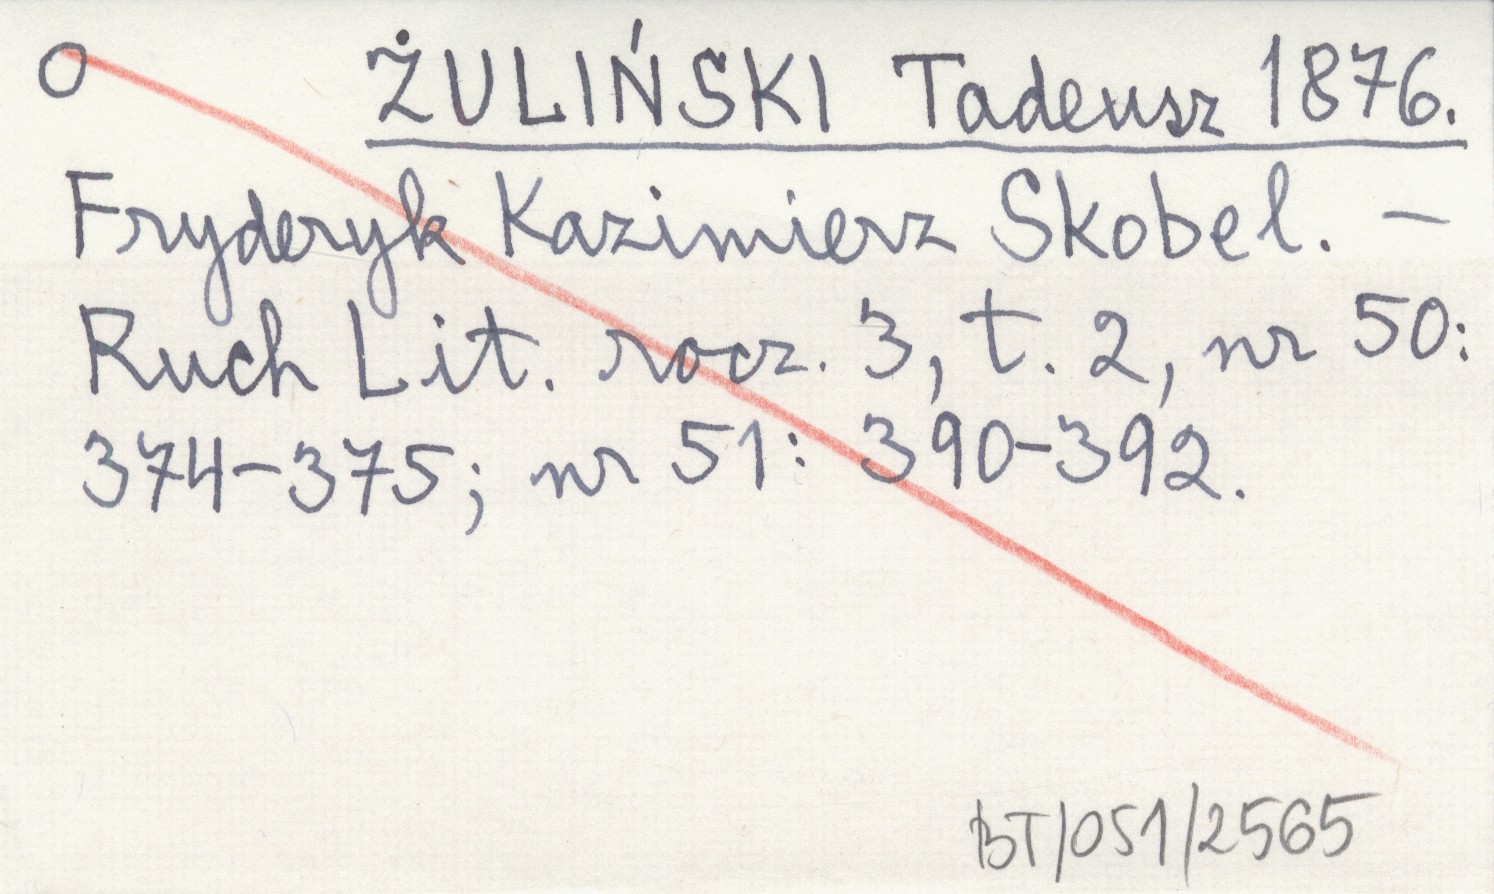 O ŻULIŃSKI Tadeusz 1876.
Fryderyk Kazimierz Skobel. —
Ruch Lit. rocz. 3, t. 2, nr 50:
374-375; nr 51: 390-392.
BT/051/2565